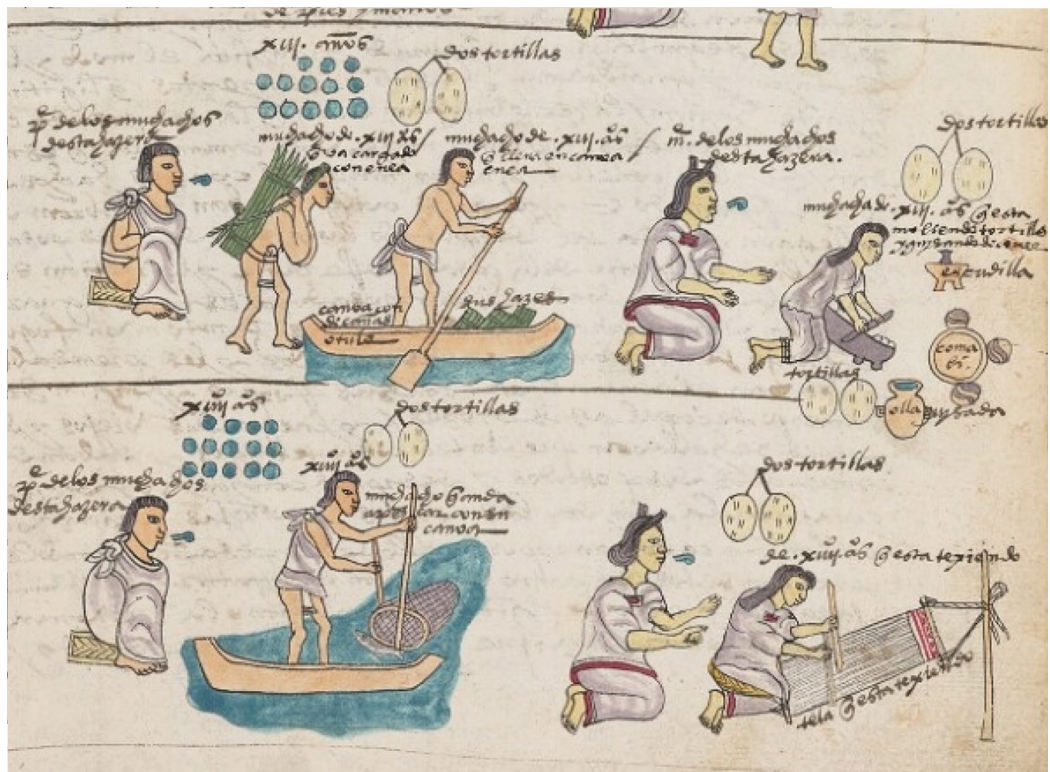 de pies y manos
xiii. años
dos tortillas
pe. de los muchachos
desta hazera
muchacho de. xiii. as/
q va cargado
con enea
muchacho de. xiii. as /
q lleva en canoa
enea
me. de los muchachos
desta hazera.
dos tortillas
muchacha de. xiii. as q esta
moliendo tortillas
y guisando de comer
escudilla
canoa con
de cañas
o tule
dos hazes
coma
li.
tortillas
olla
guisada
xiiii as
dos tortillas
pe. de los muchachos
desta hazera
xiiii as
muchacho q anda
a pescar con su
canoa
dos tortillas
de. xiiii. as q esta texiendo
tela q esta texiendo